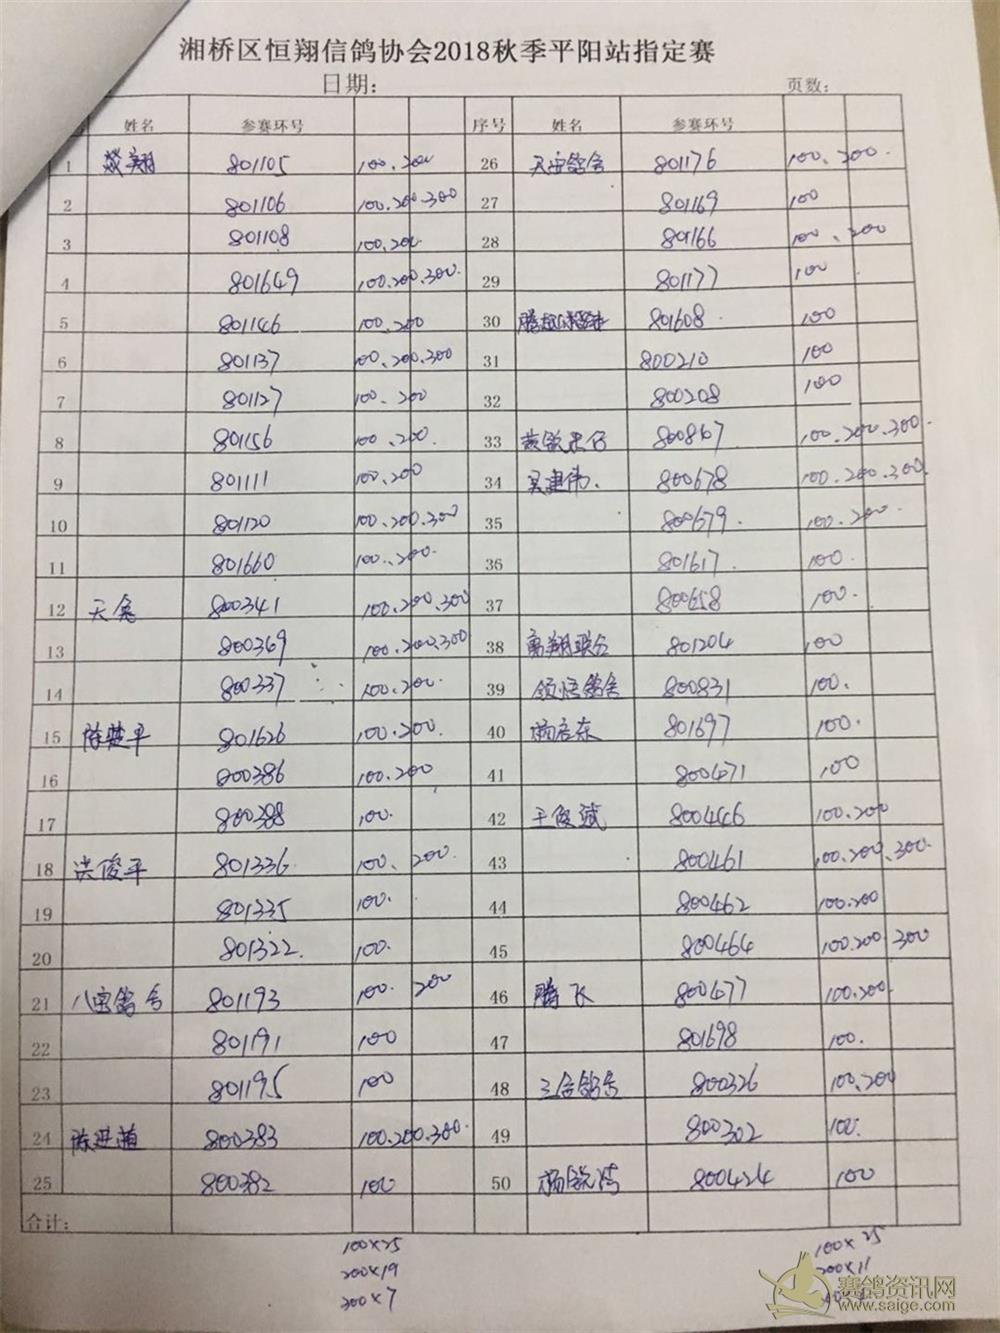 湘桥区恒翔信鸽协会2018秋季平阳站指定赛
日期: 页数:
姓名 参赛环号 序号 姓名 参赛环号
1 焱翔 801105 100、200 26 天宝鸽舍 801176 100、200.
2 801106 100.200.300 27 801169 100
3 801108 100.200. 28 801166 100、200
4 801649 100.200.300. 29 801177 100
5 801146 100.200 30 801608 100
6 801137 100.200.300 31 800210 100
7 801127 100、200 32 800208 100
8 801156 100.200. 33 800867 100.200.300.
9 801111 100.200 34 吴建伟. 800678 100.200.300.
10 801120 100.200.300 35 800679. 100.200.
11 801660 100.200. 36 801617. 100.
12 800341 100.200.300 37 800658 100.
13 800369 100.200.300 38 801204 100
14 800337 100.200. 39 领悟鸽舍 800831 100.
15 陈楚平 801626 100.200. 40 801697 100.
16 800386 100.200 41 800671 100
17 800388 100. 42 王俊斌 800446 100.200
18 洪俊平 801336 100、200. 43 800461 100.200.300.
19 801335 100. 44 800462 100.200
20 801322. 100. 45 800464 100.200 300
21 八宝鸽舍 801193 100. 200 46 腾飞 800677 100.200.
22 801191 100 47 801698 100.
23 801195 100 48 三合鸽舍 800326 100.200
24 800383 100.200.300. 49 800302 100.
25 800382 100 50 800424 100
合计:
100×25 100×25
200×19 200×11
300×7
赛鸽资讯网
www.saige.com